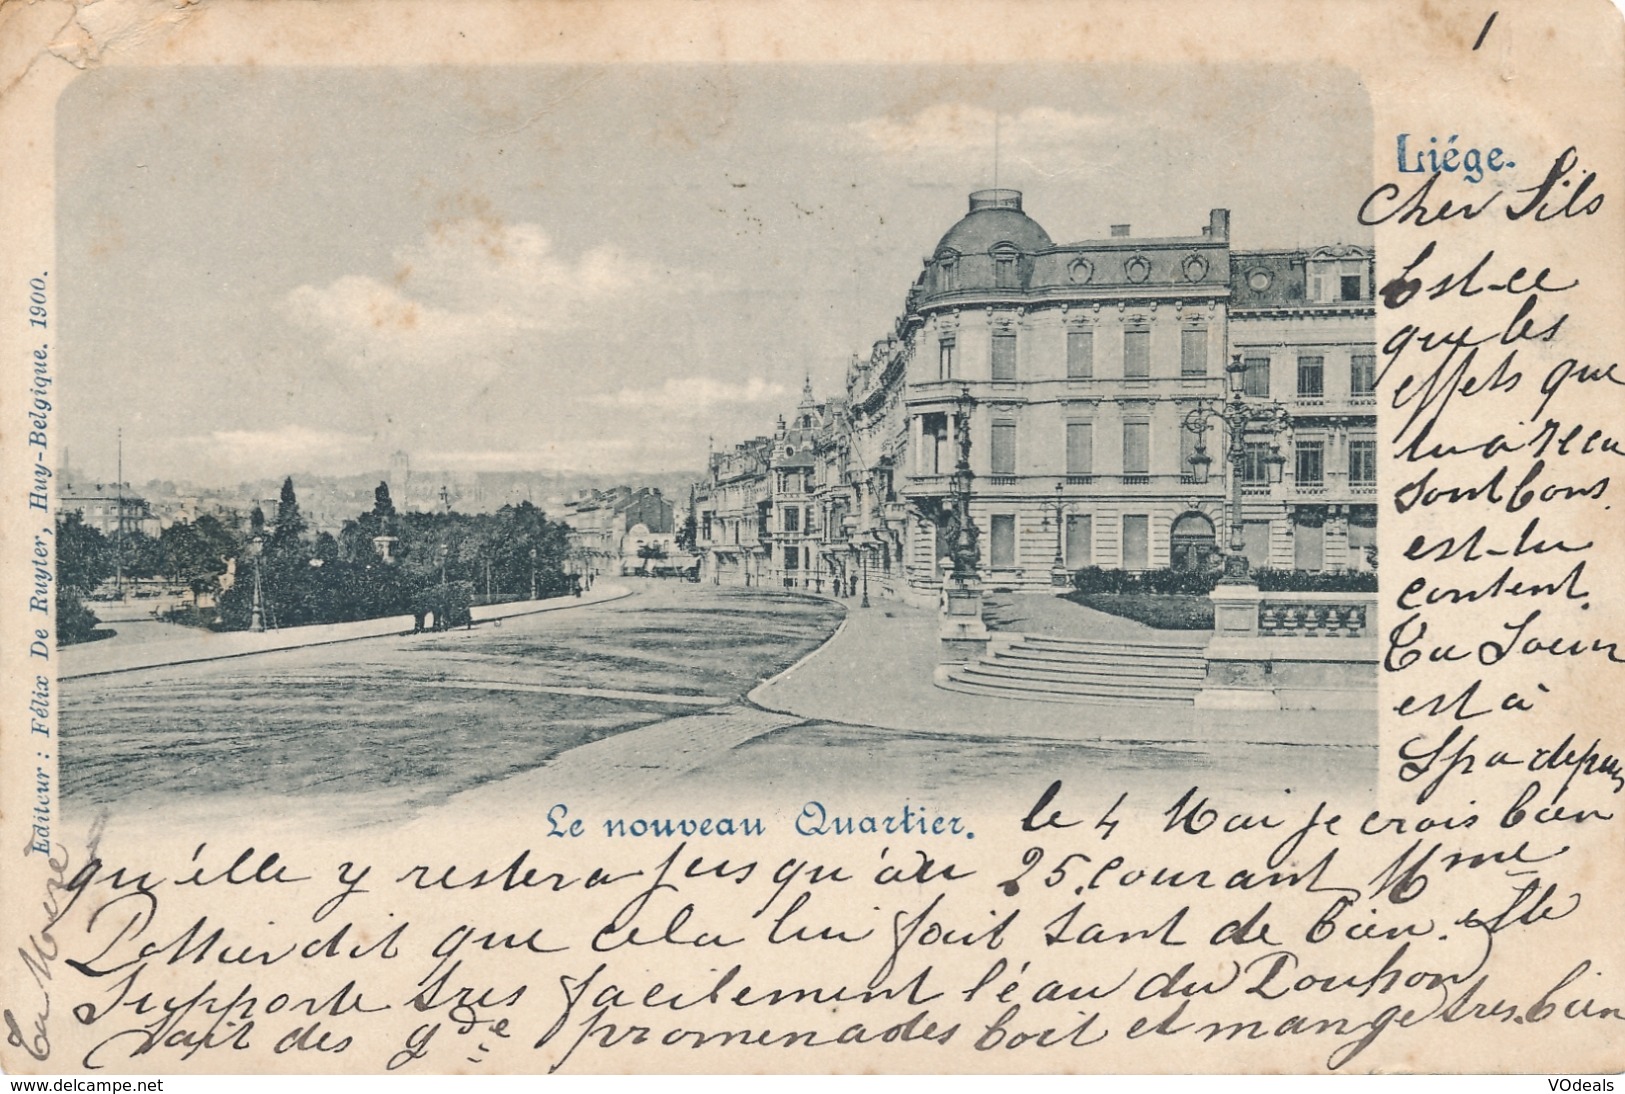 1
Liége.
Cher Fils
Est-ce
que les
effets que
tu à recu
sont bons.
est-tu
content.
Ta Soeur
est à
Spa depuis
le 4 Mai je crois bien
qu'elle y restera jusqu'au 25 courant Mme
dit que cela lui fait tant de bien. elle
supporte tres facilement l'éau du Pouhon
fait des gde promenades boit et mange tres bien
Ta Mère
Le nouveau Quartier.
Editeur : Félix De Ruyter, Huy-Belgique. 1900.
www.delcampe.net
VOdeals